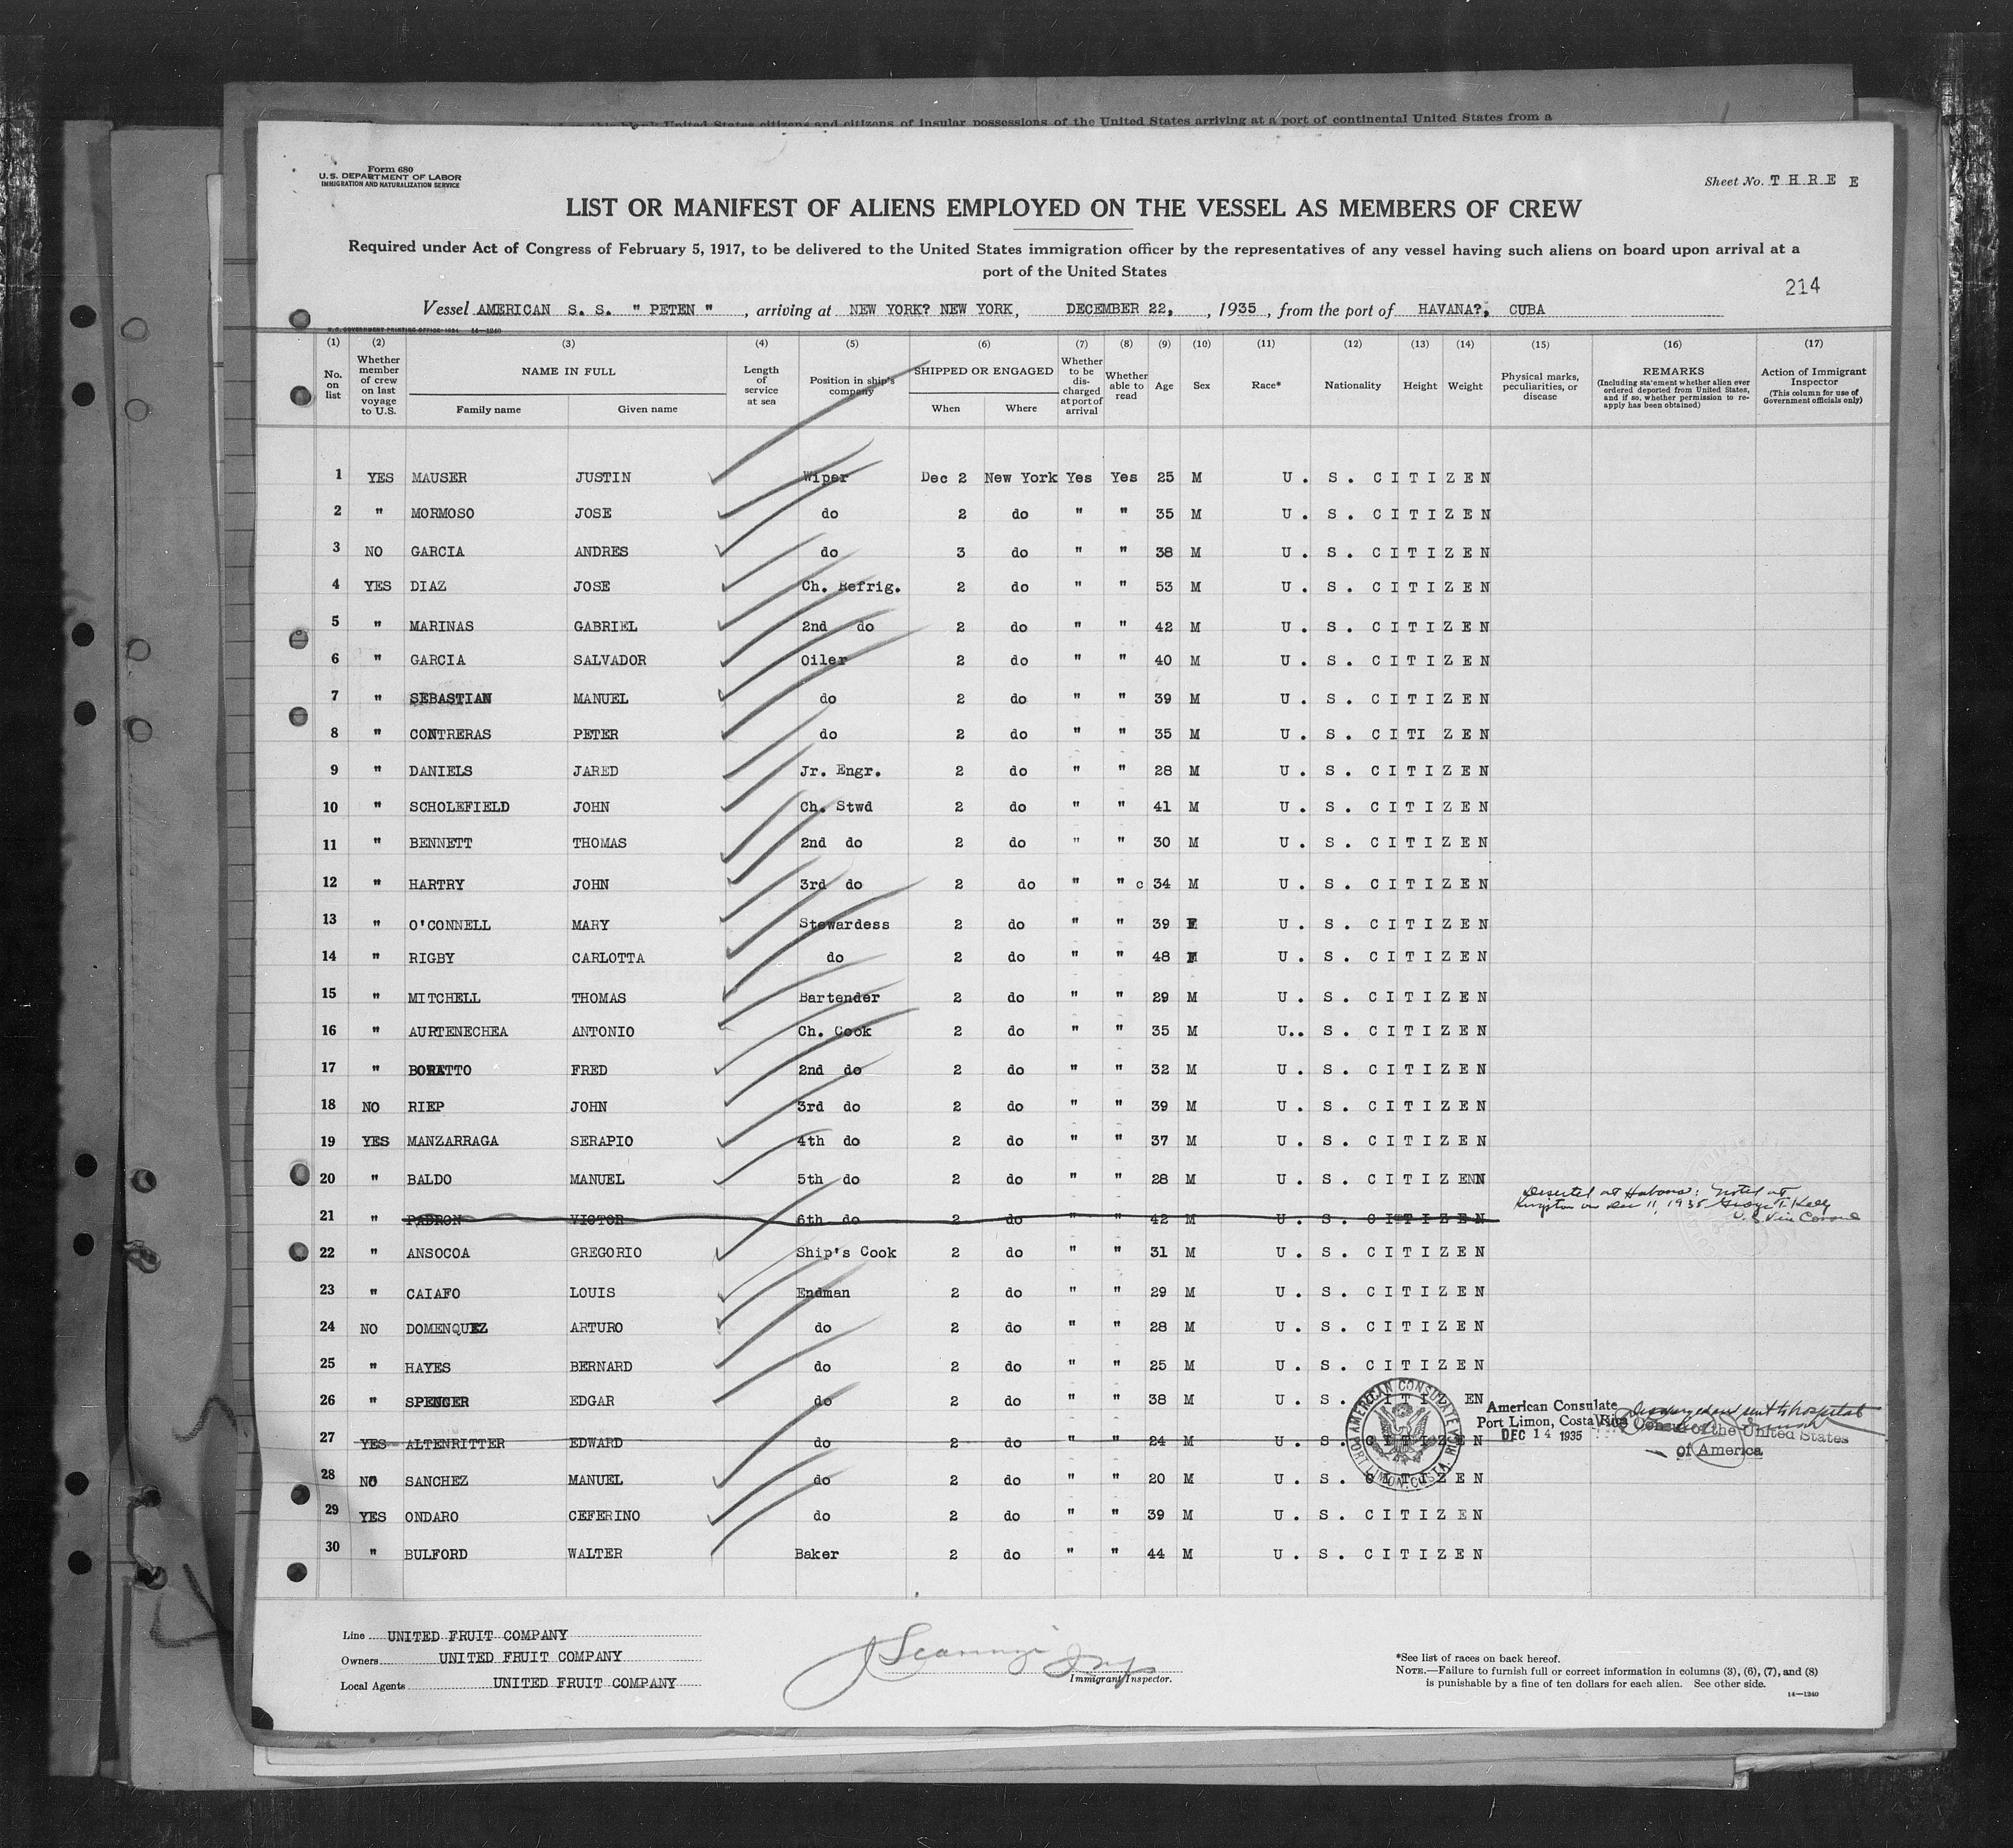 Form 680
U.S. DEPARTMENT OF LABOR
IMMIGRATION AND NATURALIZATION SERVICE
Sheet No. T H R E E
LIST OR MANIFEST OF ALIENS EMPLOYED ON THE VESSEL AS MEMBERS OF CREW
Required under Act of Congress of February 5, 1917, to be delivered to the United States immigration officer by the representatives of any vessel having such aliens on board upon arrival at a
port of the United States
214
Vessel AMERICAN S. S. " PETEN " , arriving at NEW YORK? NEW YORK, DECEMBER 22, , 1935 , from the port of HAVANA?, CUBA
U.S. GOVERNMENT PRINTING OFFICE: 1934 14—1240
(1) (2) (3) (4) (5) (6) (7) (8) (9) (10) (11) (12) (13) (14) (15) (16) (17)
No. on list Whether member of crew on last voyage to U.S. NAME IN FULL Family name Given name Length of service at sea Position in ship's company SHIPPED OR ENGAGED When Where Whether to be discharged at port of arrival Whether able to read Age Sex Race* Nationality Height Weight Physical marks, peculiarities, or disease REMARKS (Including statement whether alien ever ordered deported from United States, and if so, whether permission to reapply has been obtained) Action of Immigrant Inspector (This column for use of Government officials only)
1 YES MAUSER JUSTIN Wiper Dec 2 New York Yes Yes 25 M U. S. CITIZEN
2 " MORMOSO JOSE do 2 do " " 35 M U. S. CITIZEN
3 NO GARCIA ANDRES do 3 do " " 38 M U. S. CITIZEN
4 YES DIAZ JOSE Ch. Refrig. 2 do " " 53 M U. S. CITIZEN
5 " MARINAS GABRIEL 2nd do 2 do " " 42 M U. S. CITIZEN
6 " GARCIA SALVADOR Oiler 2 do " " 40 M U. S. CITIZEN
7 " SEBASTIAN MANUEL do 2 do " " 39 M U. S. CITIZEN
8 " CONTRERAS PETER do 2 do " " 35 M U. S. CITI ZEN
9 " DANIELS JARED Jr. Engr. 2 do " " 28 M U. S. CITIZEN
10 " SCHOLEFIELD JOHN Ch. Stwd 2 do " " 41 M U. S. CITIZEN
11 " BENNETT THOMAS 2nd do 2 do " " 30 M U. S. CITIZEN
12 " HARTRY JOHN 3rd do 2 do " " c 34 M U. S. CITIZEN
13 " O'CONNELL MARY Stewardess 2 do " " 39 F U. S. CITIZEN
14 " RIGBY CARLOTTA do 2 do " " 48 F U. S. CITIZEN
15 " MITCHELL THOMAS Bartender 2 do " " 29 M U. S. CITIZEN
16 " AURTENECHEA ANTONIO Ch. Cook 2 do " " 35 M U.. S. CITIZEN
17 " BORATTO FRED 2nd do 2 do " " 32 M U. S. CITIZEN
18 NO RIEP JOHN 3rd do 2 do " " 39 M U. S. CITIZEN
19 YES MANZARRAGA SERAPIO 4th do 2 do " " 37 M U. S. CITIZEN
20 " BALDO MANUEL 5th do 2 do " " 28 M U. S. CITIZENN
21 " PADRON VICTOR 6th do 2 do " " 42 M U. S. CITIZEN Deserted at Habana; Noted at
Kingston on Dec 11, 1935 George T. Kelly
U.S. Vice Consul
22 " ANSOCOA GREGORIO Ship's Cook 2 do " " 31 M U. S. CITIZEN
23 " CAIAFO LOUIS Endman 2 do " " 29 M U. S. CITIZEN
24 NO DOMENQUEZ ARTURO do 2 do " " 28 M U. S. CITIZEN
25 " HAYES BERNARD do 2 do " " 25 M U. S. CITIZEN
26 " SPENCER EDGAR do 2 do " " 38 M U. S. CITIZEN
27 YES ALTENRITTER EDWARD do 2 do " " 24 M U. S. CITIZEN
AMERICAN CONSULATE PORT LIMON, COSTA RICA
American Consulate
Port Limon, Costa Rica
DEC 14 1935
Discharged and sent to hospital
Vice Consul of the United States
of America
28 NO SANCHEZ MANUEL do 2 do " " 20 M U. S. CITIZEN
29 YES ONDARO CEFERINO do 2 do " " 39 M U. S. CITIZEN
30 " BULFORD WALTER Baker 2 do " " 44 M U. S. CITIZEN
Line UNITED FRUIT COMPANY
Owners UNITED FRUIT COMPANY
Local Agents UNITED FRUIT COMPANY
Immigrant Inspector.
*See list of races on back hereof.
NOTE.—Failure to furnish full or correct information in columns (3), (6), (7), and (8)
is punishable by a fine of ten dollars for each alien. See other side.
14—1240